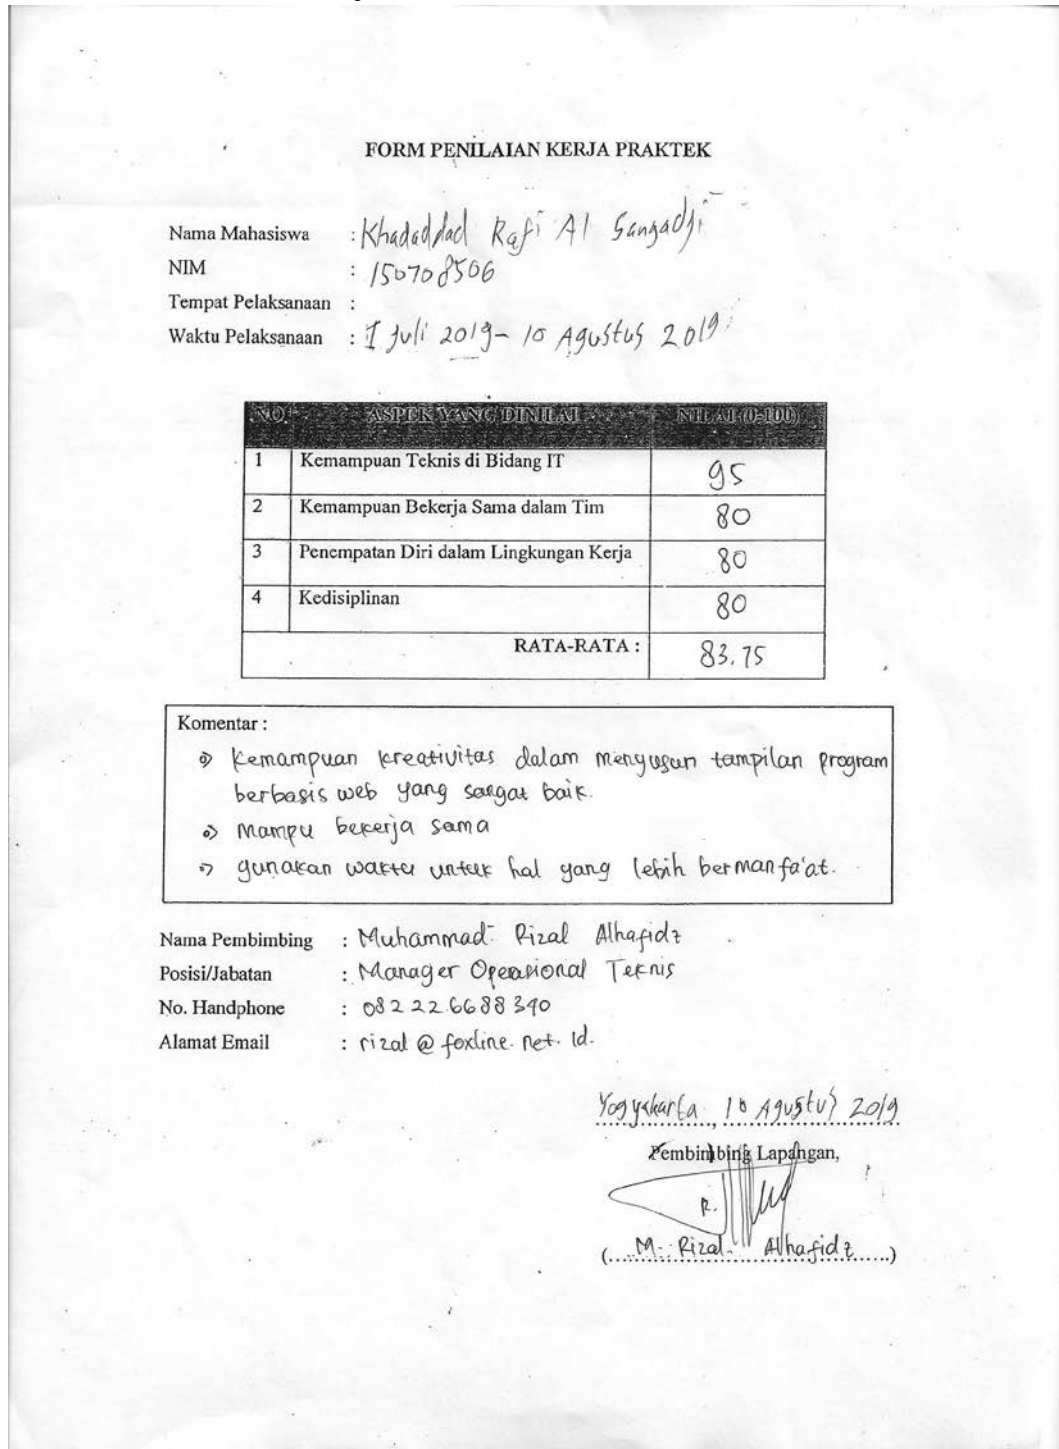 FORM PENILAIAN KERJA PRAKTEK
Nama Mahasiswa : Khadaddad Rafi Al Sangadji
NIM : 150708506
Tempat Pelaksanaan :
Waktu Pelaksanaan : 1 Juli 2019 - 10 Agustus 2019
NO. ASPEK YANG DINILAI NILAI (0-100)
1 Kemampuan Teknis di Bidang IT 95
2 Kemampuan Bekerja Sama dalam Tim 80
3 Penempatan Diri dalam Lingkungan Kerja 80
4 Kedisiplinan 80
RATA-RATA : 83.75
Komentar :
Kemampuan kreativitas dalam menyusun tampilan program
berbasis web yang sangat baik.
Mampu bekerja sama
gunakan waktu untuk hal yang lebih bermanfa'at.
Nama Pembimbing : Muhammad Rizal Alhafidz
Posisi/Jabatan : Manager Operasional Teknis
No. Handphone : 082226688390
Alamat Email : rizal@foxline.net.id.
Yogyakarta, 10 Agustus 2019
Pembimbing Lapangan,
R.
(M. Rizal Alhafidz)